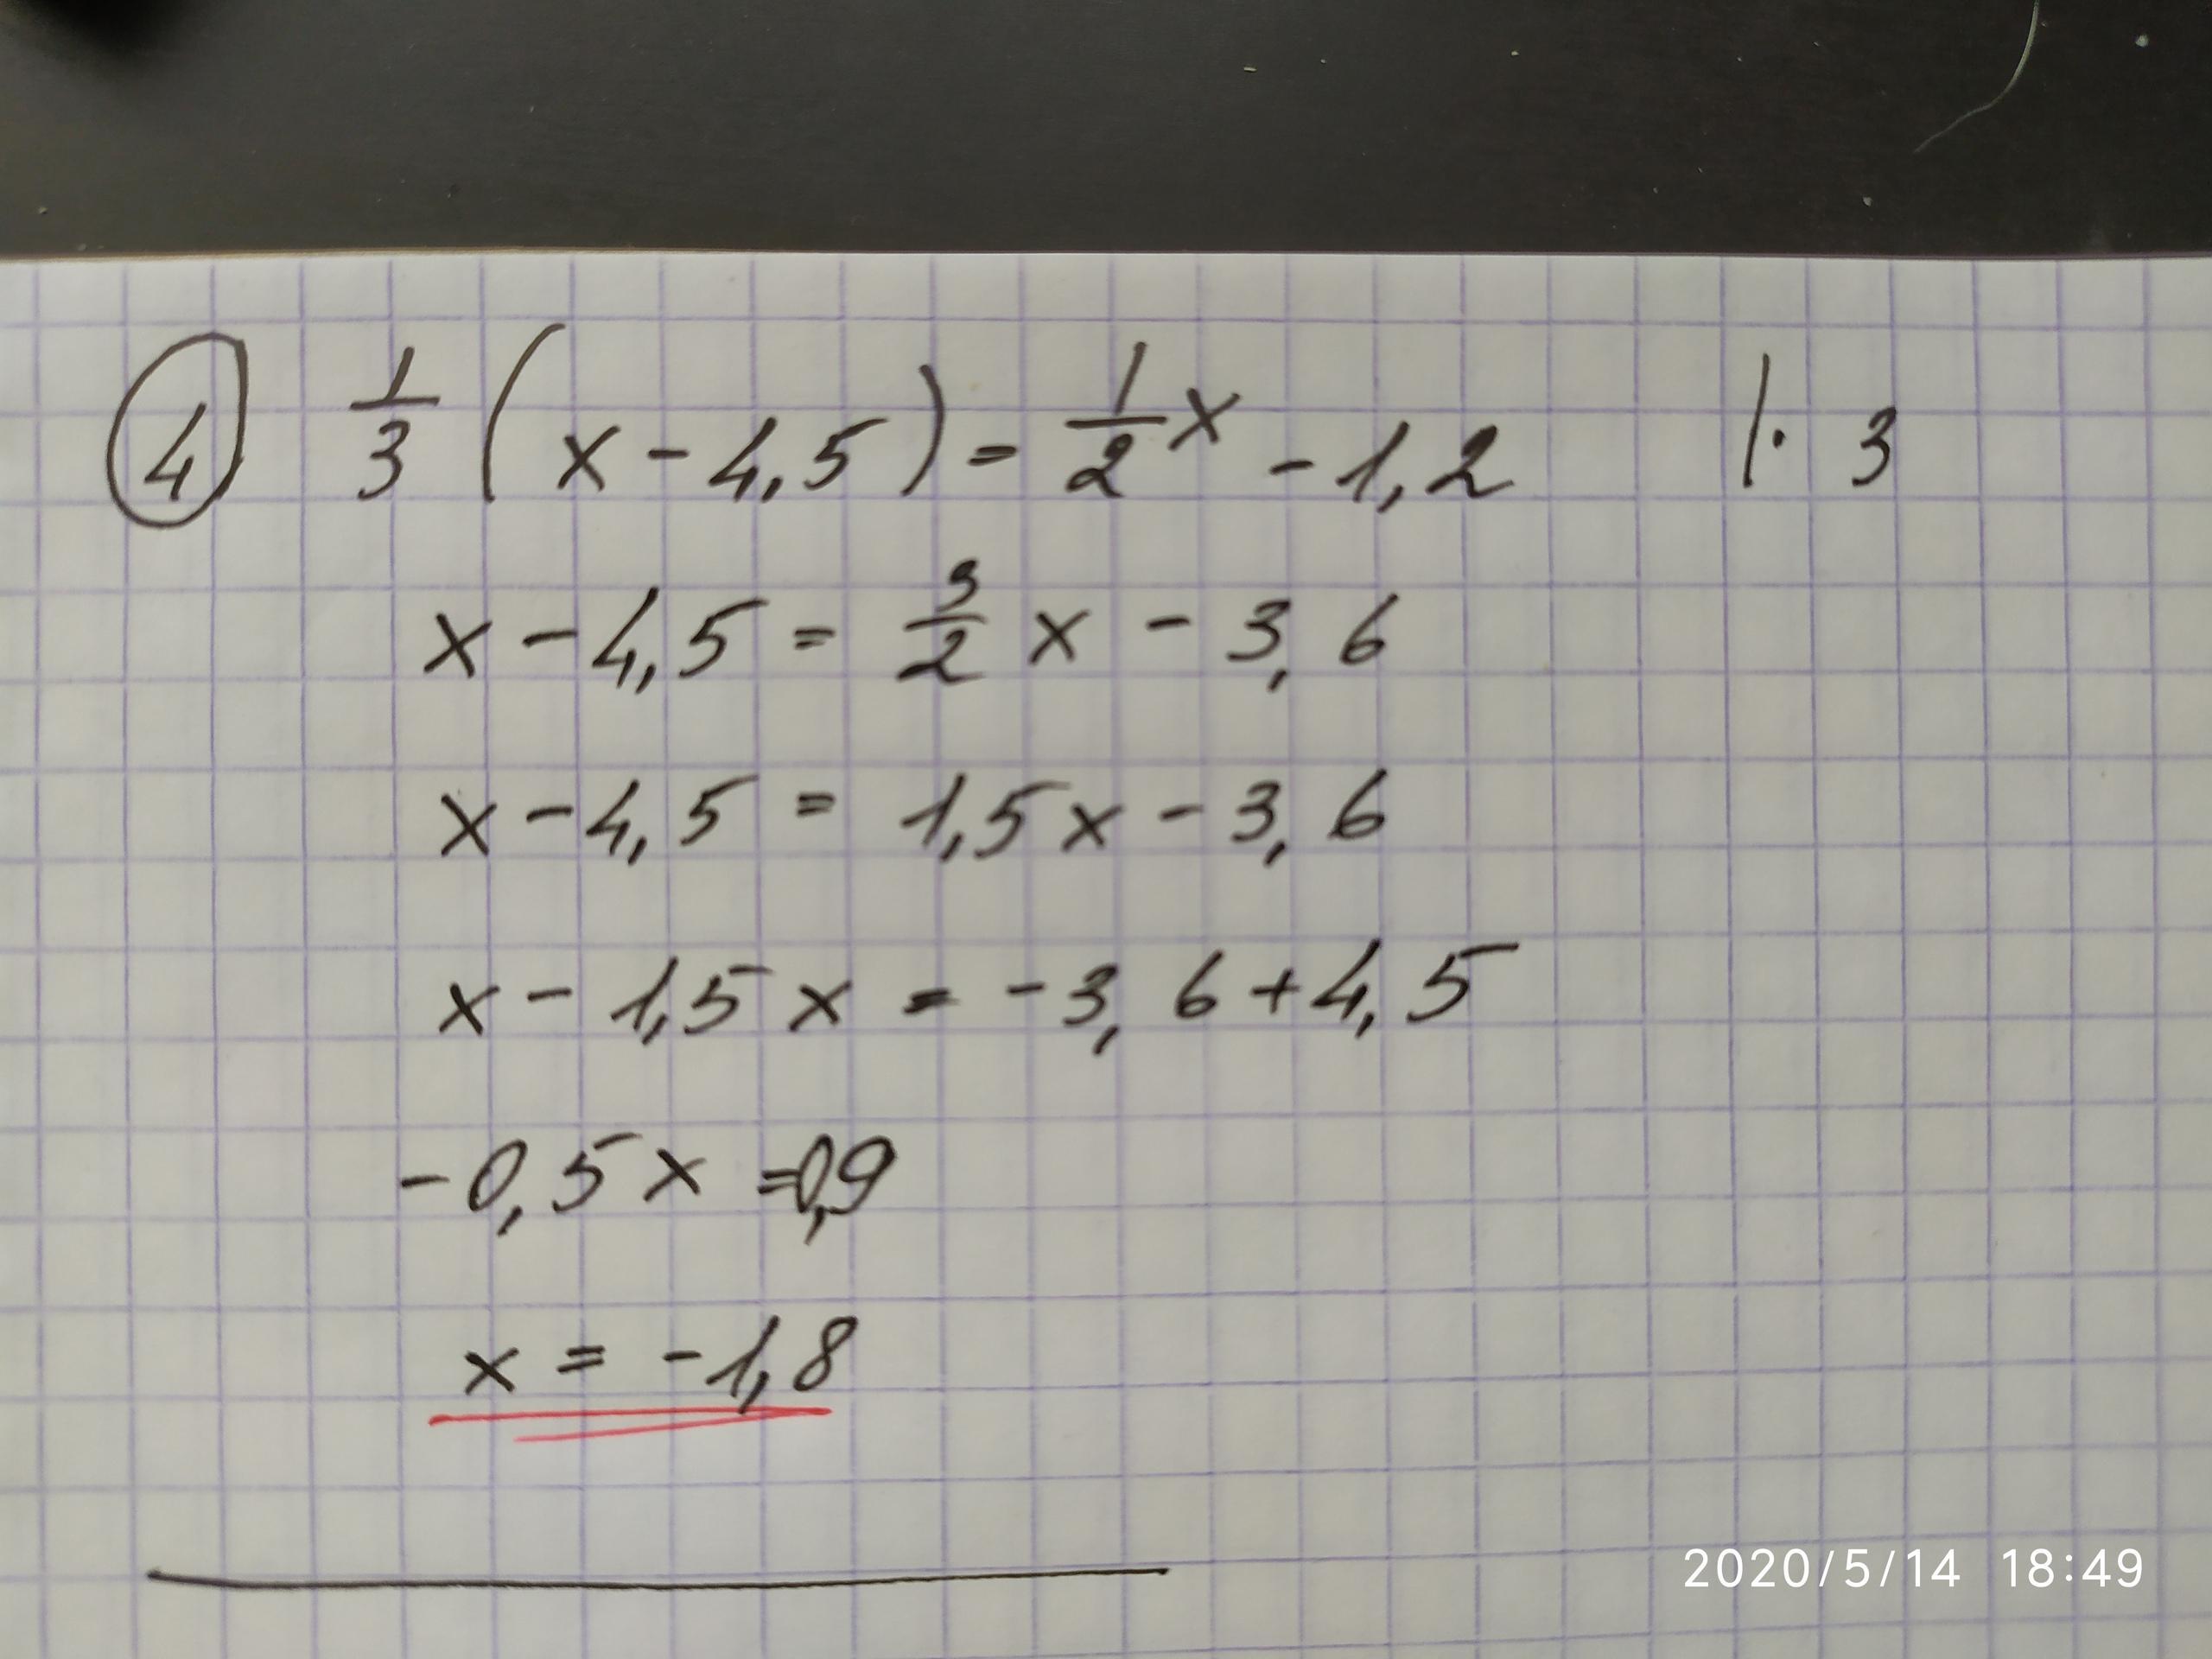 ④ 1/3 (x - 4,5) = 1/2 x - 1,2 | · 3
x - 4,5 = 3/2 x - 3,6
x - 4,5 = 1,5x - 3,6
x - 1,5x = -3,6 + 4,5
-0,5x = 0,9
x = -1,8
2020/5/14 18:49